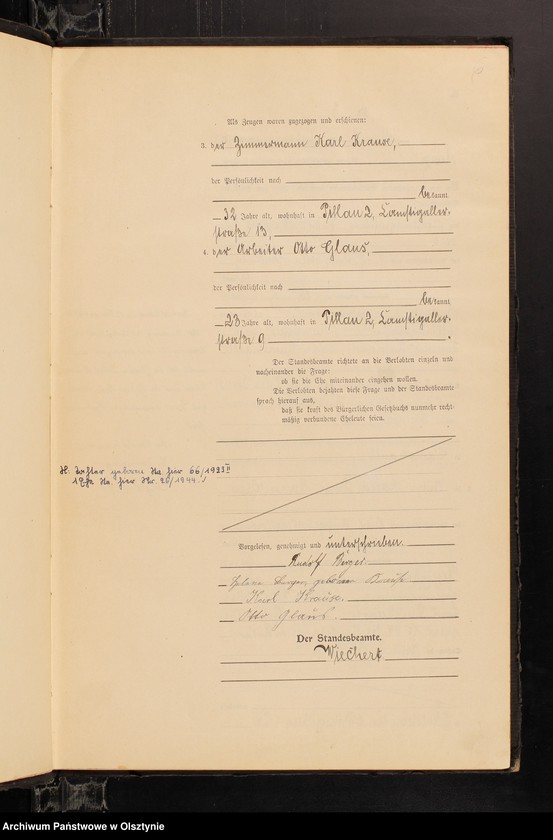 Als Zeugen waren zugezogen und erschienen:
3. der Zimmermann Karl Krause,
der Persönlichkeit nach
bekannt
32 Jahre alt, wohnhaft in Pillau 2, Camstigaller-
straße 13,
4. der Arbeiter Otto Glaus,
der Persönlichkeit nach
bekannt
28 Jahre alt, wohnhaft in Pillau 2, Camstigaller-
straße 9.
Der Standesbeamte richtete an die Verlobten einzeln und
nacheinander die Frage:
ob sie die Ehe miteinander eingehen wollen.
Die Verlobten bejahten diese Frage und der Standesbeamte
sprach hierauf aus,
daß sie kraft des Bürgerlichen Gesetzbuchs nunmehr recht-
mäßig verbundene Eheleute seien.
Tochter geboren Na. hier 66/1923
Na. hier Nr. 26/1944.
Vorgelesen, genehmigt und unterschrieben.
Rudolf Berger.
Berger, geboren
Karl Krause.
Otto Glaus.
Der Standesbeamte.
Wiechert.
Archiwum Państwowe w Olsztynie